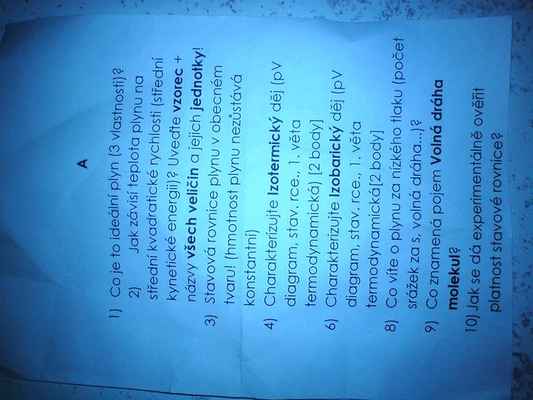 A
1) Co je to ideální plyn (3 vlastnosti)?
2) Jak závisí teplota plynu na
střední kvadratické rychlosti (střední
kynetické energii)? Uveďte vzorec +
názvy všech veličin a jejich jednotky!
3) Stavová rovnice plynu v obecném
tvaru! (hmotnost plynu nezůstává
konstantní)
4) Charakterizujte Izotermický děj (pV
diagram, stav. rce., 1. věta
termodynamická) [2 body]
6) Charakterizujte Izobarický děj (pV
diagram, stav. rce., 1. věta
termodynamická[2 body]
8) Co víte o plynu za nízkého tlaku (počet
srážek za s, volná dráha...)?
9) Co znamená pojem Volná dráha
molekul?
10) Jak se dá experimentálně ověřit
platnost stavové rovnice?